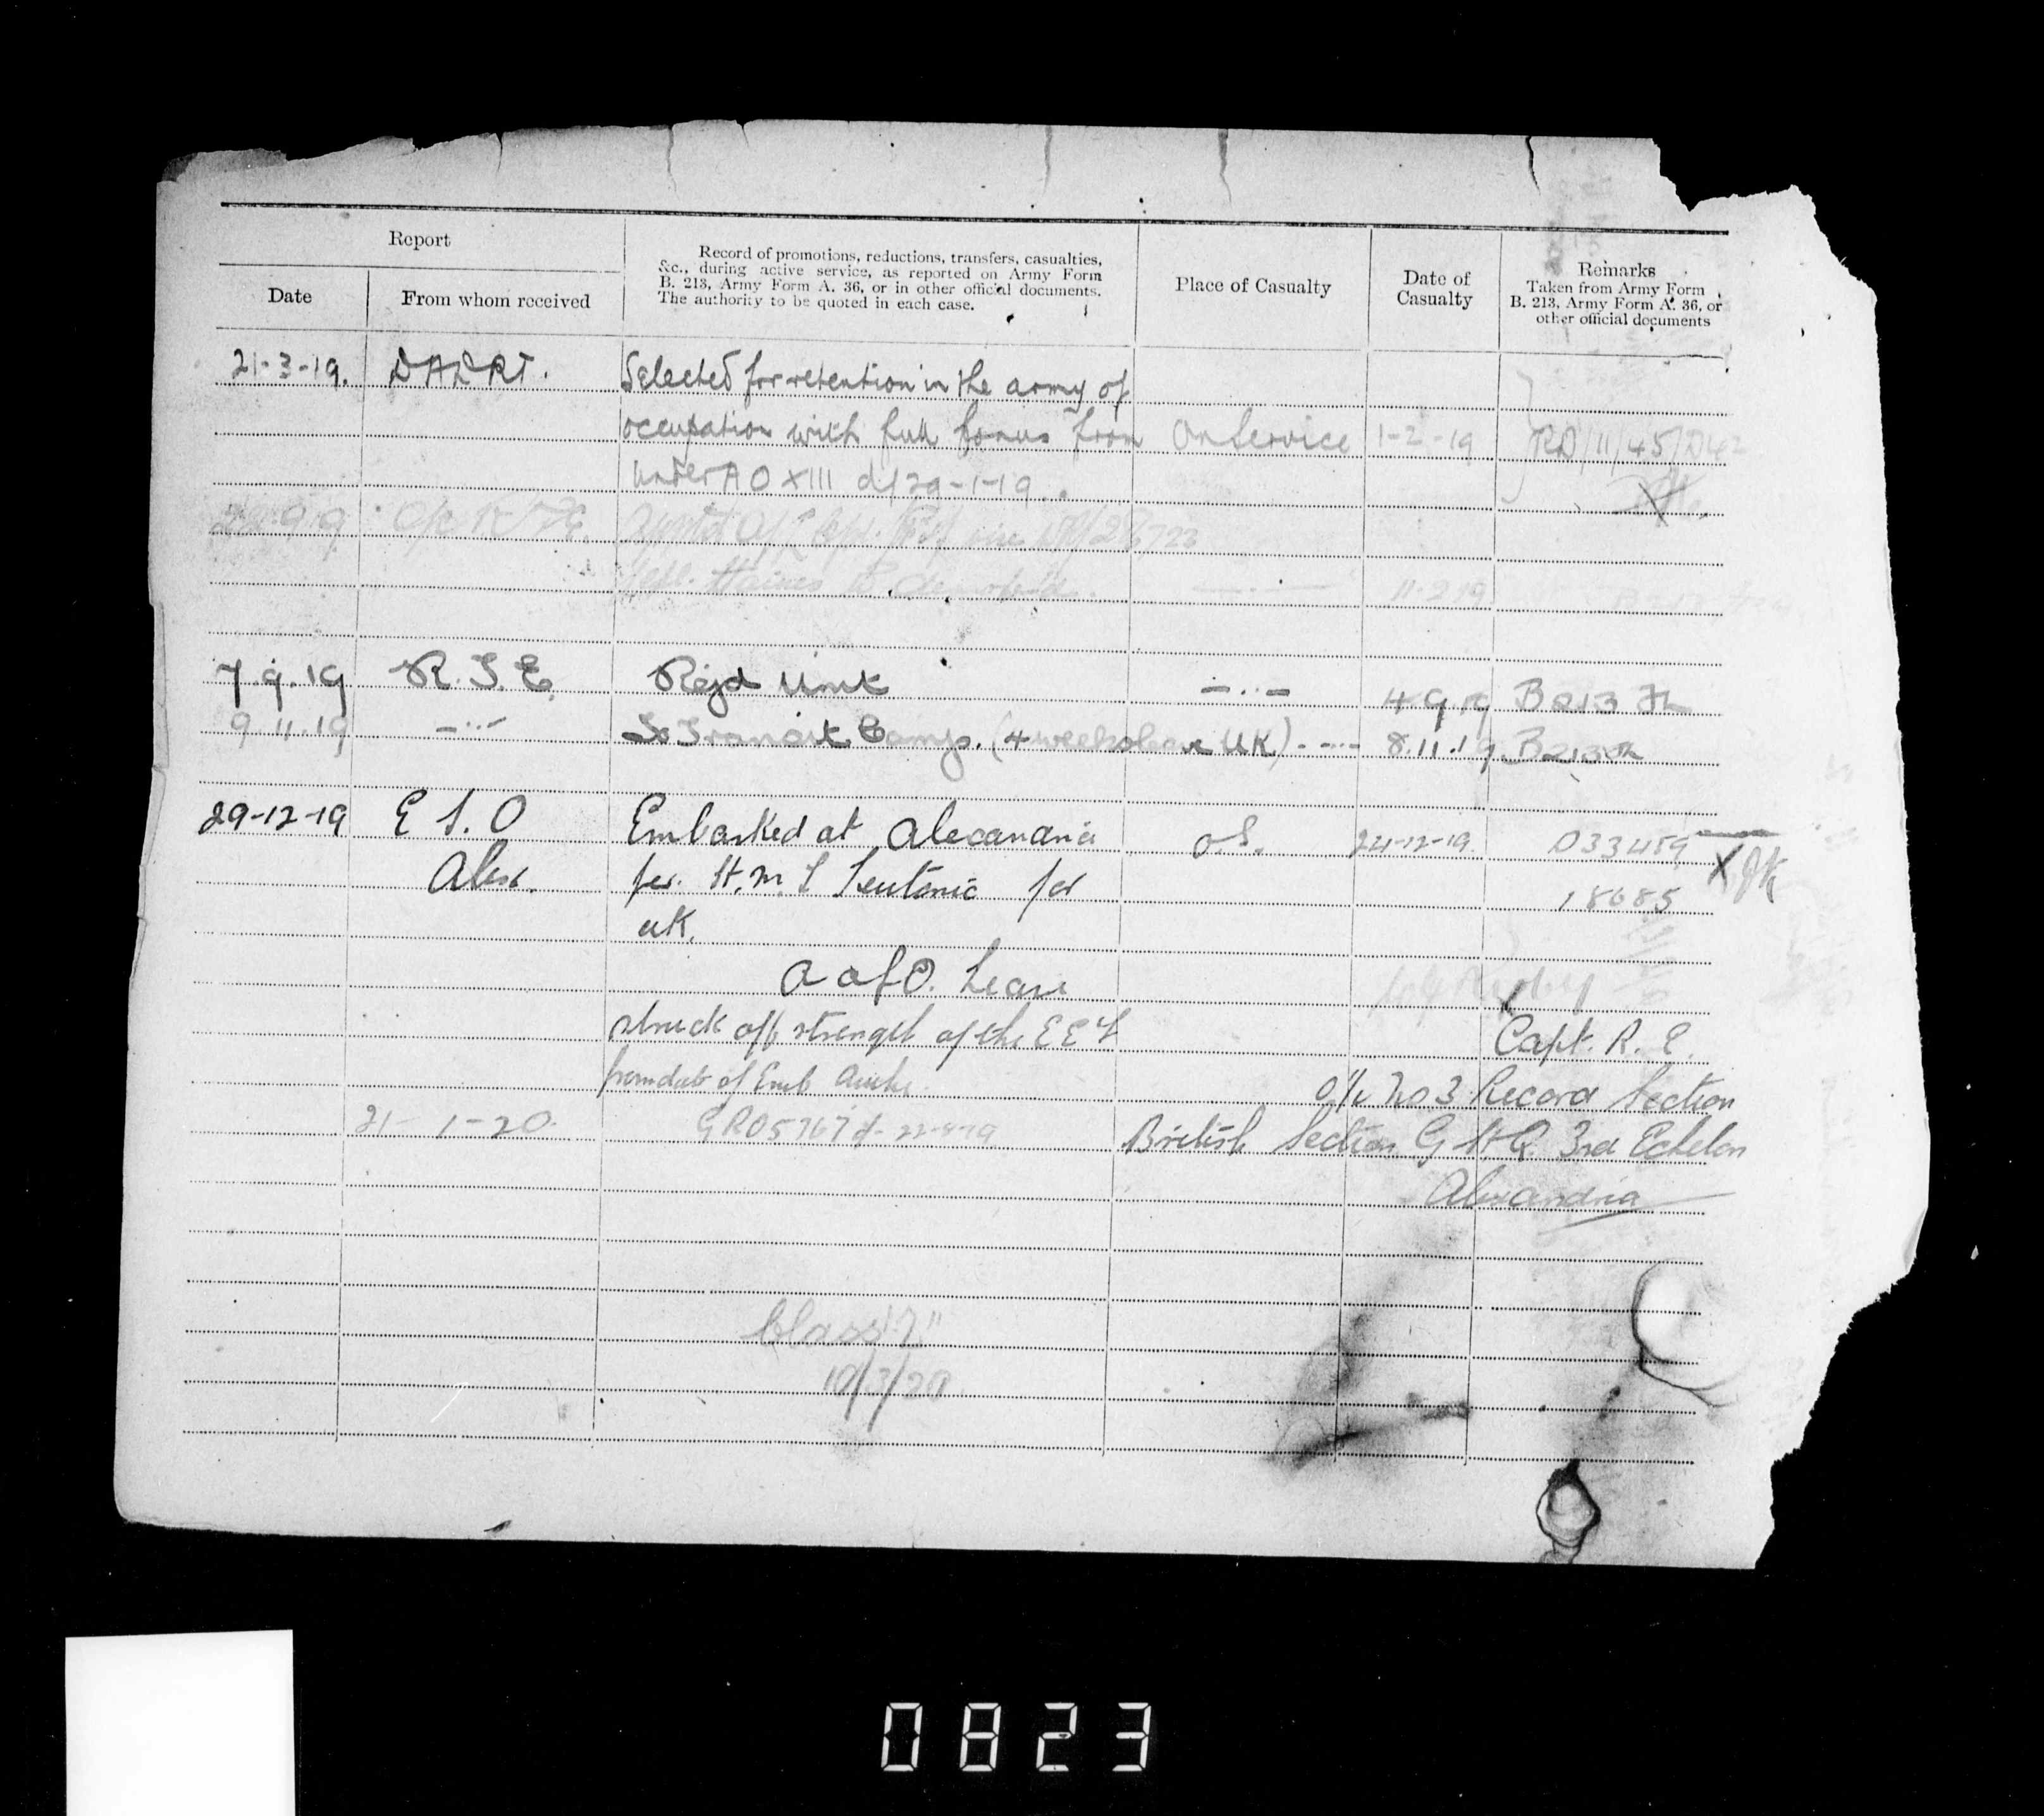 Report
Date
From whom received
Record of promotions, reductions, transfers, casualties,
&c., during active service, as reported on Army Form
B. 213, Army Form A. 36, or in other official documents.
The authority to be quoted in each case.
Place of Casualty
Date of
Casualty
Remarks
Taken from Army Form
B. 213, Army Form A. 36, or
other official documents
21-3-19. DADRT. Selected for retention in the army of
occupation with full bonus from On Service 1-2-19 RD/11/45/D42
under A O XIII d/29-1-19.
11.2.19
7.9.19 R.T.E. Rejd Unit —..— 4 9 19 B213
9.11.19 —..— To Transit Camp. (4 weeks leave UK) —..— 8.11.19 B213
29-12-19 E S. O Embarked at Alexandria O.S. 24-12-19. D33459
Alex. per. H.M.S Teutonic for 18685
UK.
A of O. Leave
struck off strength of the EEF Capt. R. E.
from date of Emb O/c No 3 Record Section
21-1-20. GRO5767 d- British Section G.H.Q. 3rd Echelon
Alexandria
Class "Z"
10/3/20
0823